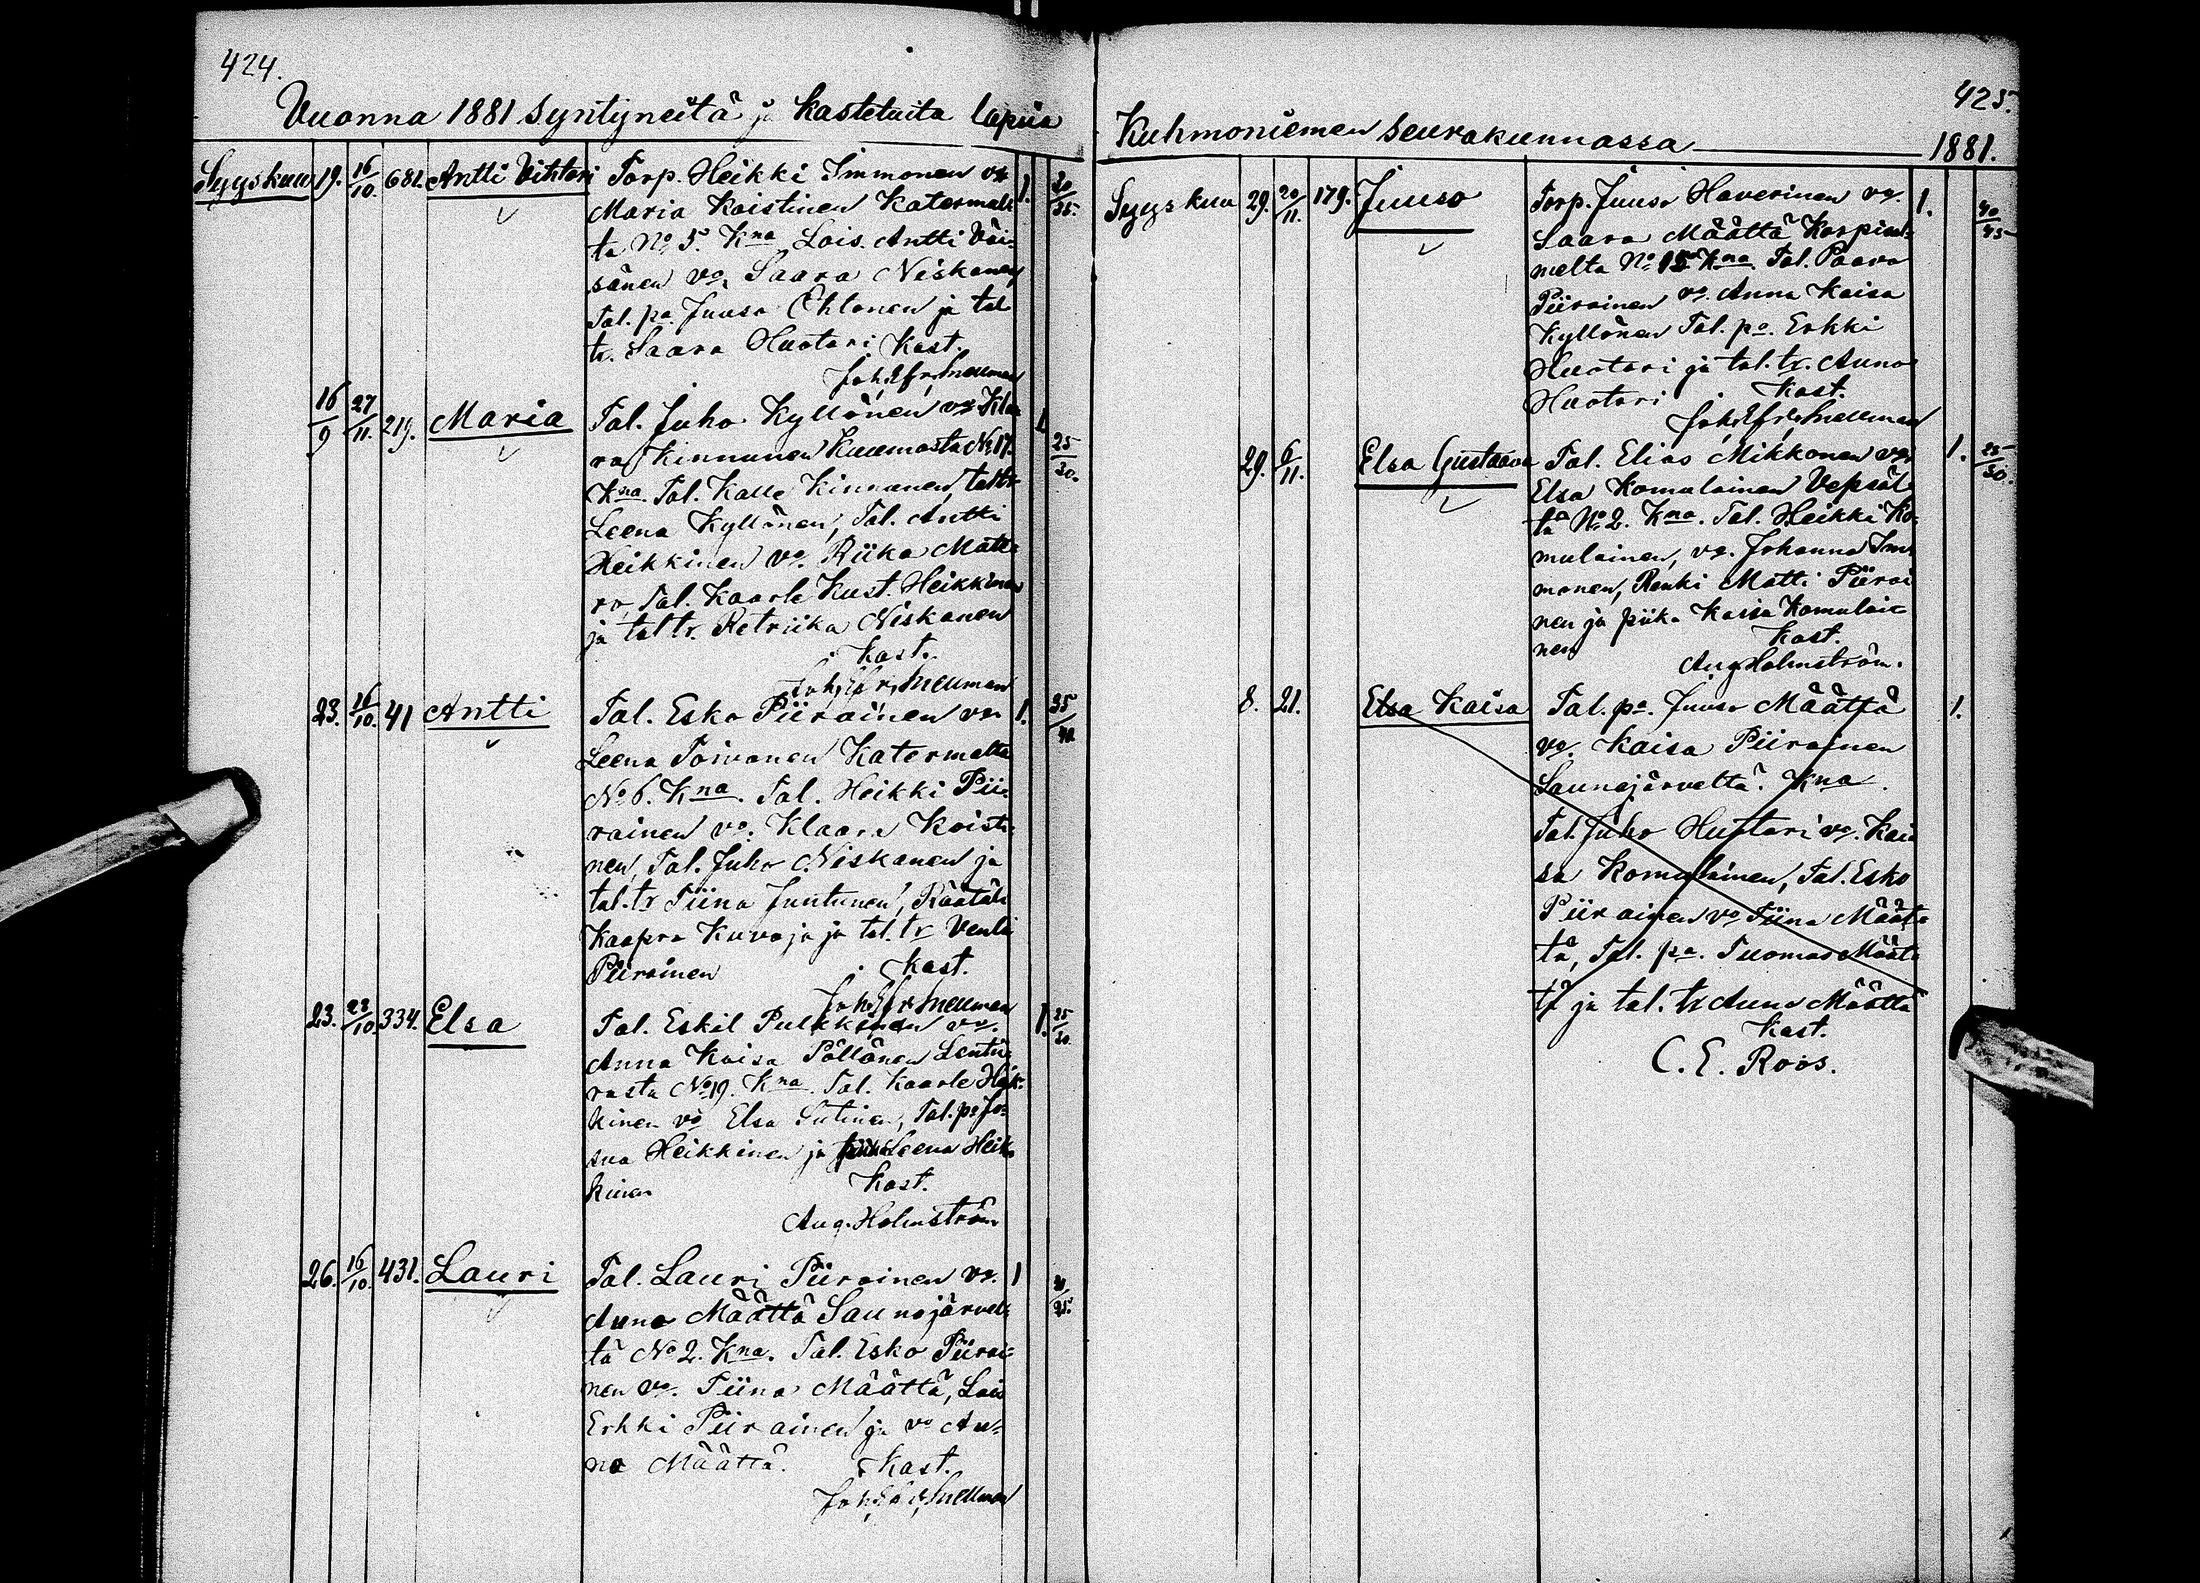 424.
Vuonna 1881 syntyneitä ja kastetuita lapsia
Syyskuu 19. 16/10. 681. Antti Vihtori Torp. Heikki Immonen vo 1. 30/35.
Maria Koistinen Katermal-
ta No 5. Kna Lois. Antti Väi-
sänen vo, Saara Niskanen,
Tal. pa. Juuso Ohtonen ja tal
tr. Saara Huotari. Kast.
Joh. Efr. Snellman
16/9 27/11. 219. Maria Tal. Juho Kyllönen vo Kla 1. 25/30.
ra Kinnunen Kuumasta No 17.
Kna. Tal. Kalle Kinnunen, tal tr
Leena Kyllönen, Tal. Antti
Heikkinen vo. Riika Matte
ro, Tal. Kaarle Kust. Heikkinen
ja tal tr. Retriika Niskanen
Kast.
Joh. Efr. Snellman
23. 16/10. 41 Antti Tal. Esko Piirainen vo 1. 35/40.
Leena Toivonen Katermalta
No 6. Kna. Tal. Heikki Pii-
rainen vo. Klaara Koisti-
nen, Tal. Juho Niskanen ja
tal. tr Tiina Juntunen, Räätäli
Kaapro Kuvaja ja tal. tr Venla
Piirainen Kast.
Joh. Efr. Snellman
23. 23/10. 334. Elsa Tal. Eskil Pulkkinen vo. 1. 25/30.
Anna Kaisa Pöllänen Lentii-
rasta No 19. Kna. Tal. Kaarle Heik-
kinen vo Elsa Sutinen, Tal. po Jo-
sua Heikkinen ja Leena Heik-
kinen Kast.
Aug. Holmström
26. 16/10. 431. Lauri Tal. Lauri Piirainen vo. 1 /25.
Anna Määttä Saunajärvel-
tä No 2. Kna. Tal. Esko Piirai-
nen vo. Tiina Määttä, Lois
Erkki Piirainen ja vo An-
na Määttä. Kast.
Joh. Efr. Snellman
425.
Kuhmoniemen seurakunnassa 1881.
Syyskuu 29. 20/11. 179. Juuso Torp. Juuso Haverinen vo. 1. 40/45
Saara Määttä Korpisal-
melta No 15 Kna. Tal. Paavo
Piirainen vo. Anna Kaisa
Kyllönen Tal. po. Erkki
Huotari ja tal. tr. Anna
Huotari Kast.
Joh. Efr. Snellman
29. 6/11. Elsa Gustaava Tal. Elias Mikkonen vo. 1. 25/30.
Elsa Komulainen Vepsäl-
tä No 2. Kna. Tal. Heikki Ko-
mulainen, vo. Johanna Im-
monen, Renki Matti Piirai
nen ja piika Kaisa Komulai-
nen Kast.
Aug. Holmström.
8. 21. Elsa Kaisa Tal. po. Juuso Määttä 1.
vo. Kaisa Piirainen
Saunajärveltä. Kna.
Tal. Juho Huotari vo. Kai
sa Komulainen, Tal. Esko
Piirainen vo Tiina Määt-
tä, Tal. po. Tuomas Määt-
tä ja tal. tr Anna Määttä
Kast.
C. E. Roos.